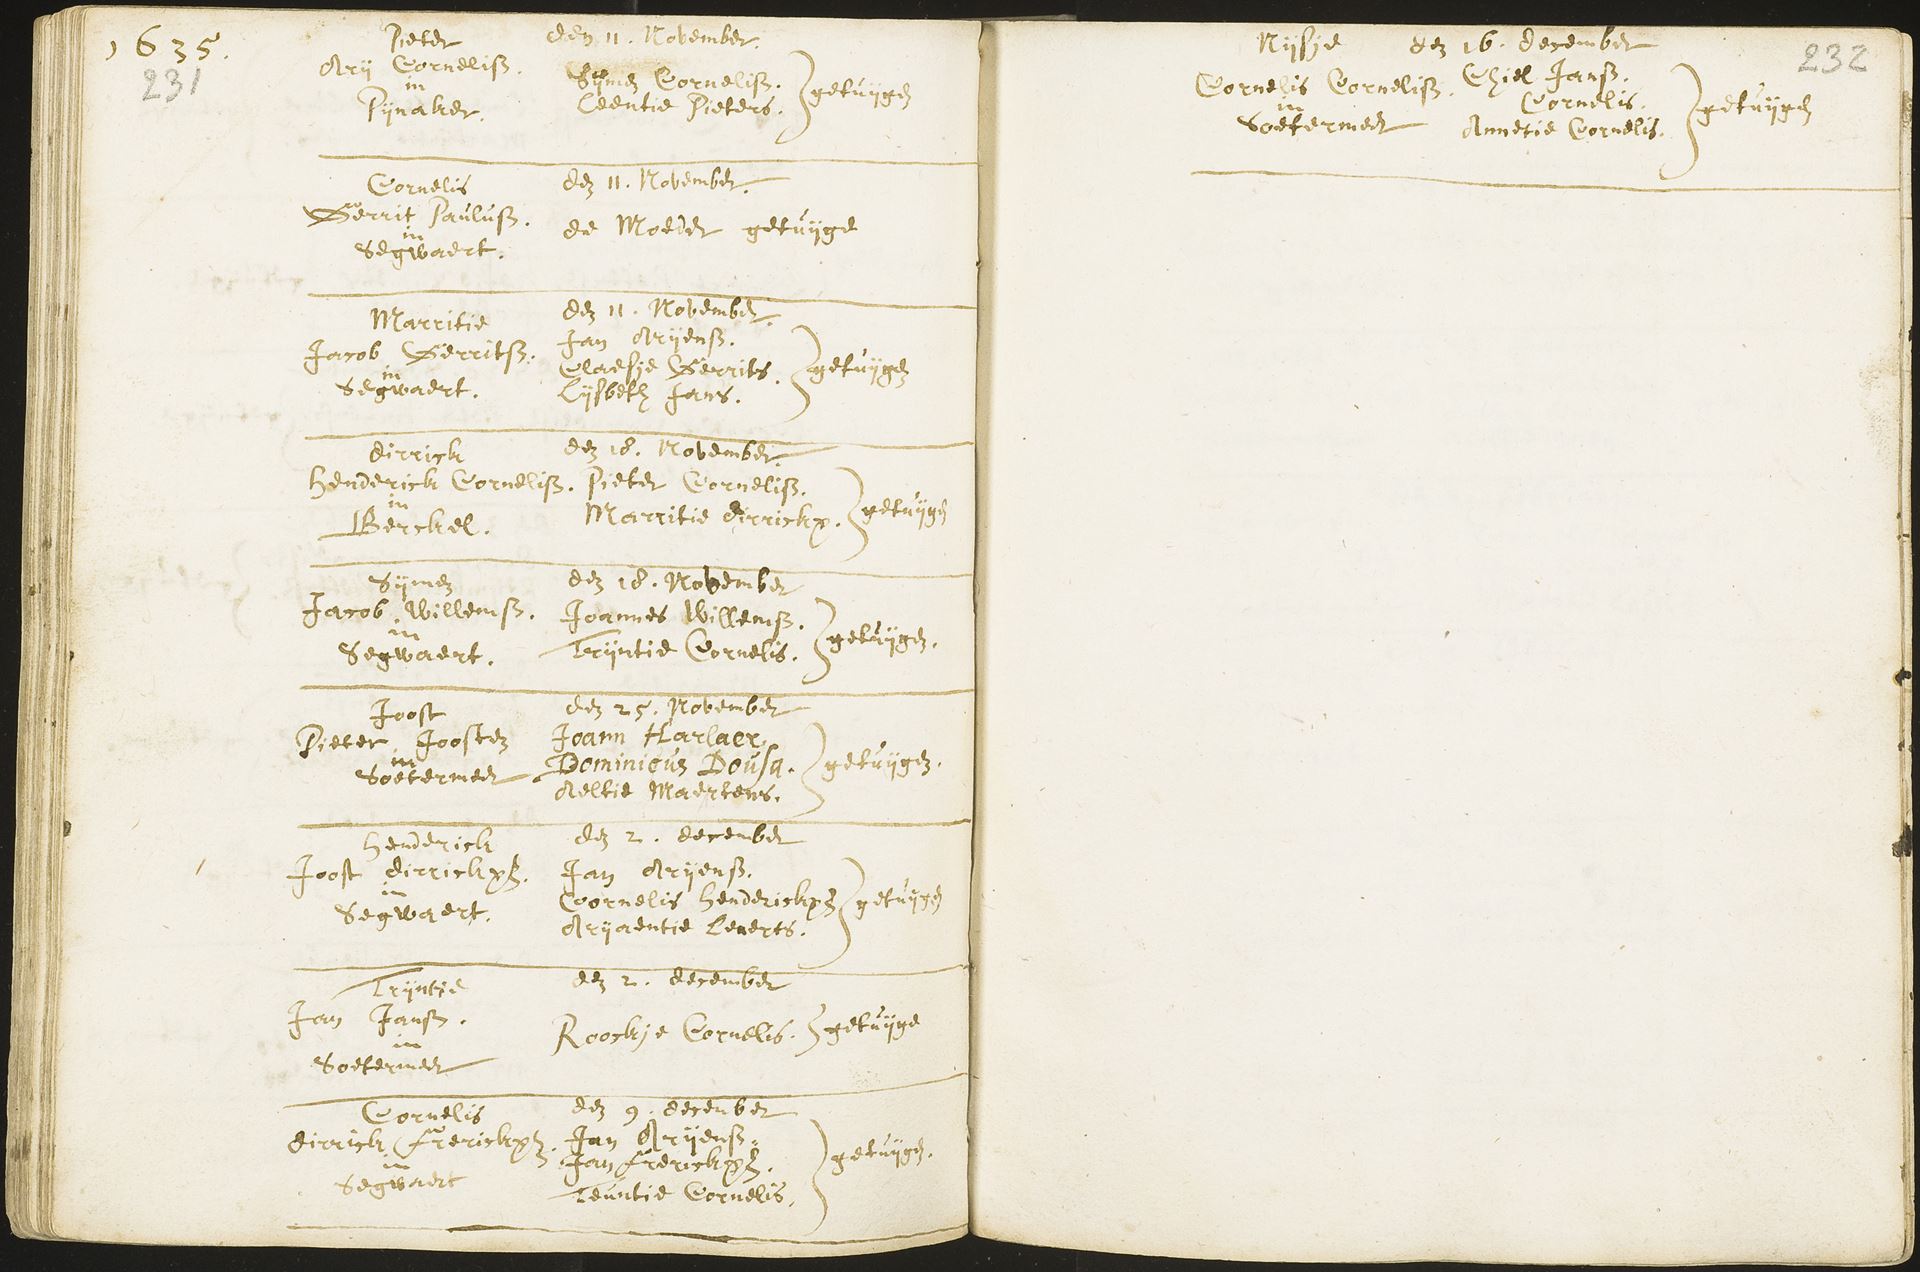 1635.
231
Pieter
Ary Cornelisz.
in
Pynaker.
den 11. November.
Symen Cornelisz.
Leentie Pieters.
getuijgen
Cornelis
Gerrit Paulusz.
in
Segwaert.
den 11. November.
de Moeder getuijge
Marritie
Jacob Gerritsz.
in
Segwaert.
den 11. November.
Jan Arijensz.
Claesje Gerrits.
Lijsbeth Jans.
getuijgen
dirrick
Henderick Cornelisz.
in
Berckel.
den 18. November.
Pieter Cornelisz.
Marritie dirrickx.
getuijgen
Symen
Jacob Willemsz.
in
Segwaert.
den 18. November
Joannes Willemsz.
Trijntie Cornelis.
getuijgen.
Joost
Pieter Joosten
in
Soetermeer
den 25. November
Joann Harlaer.
Dominicus Dousa.
Aeltie Maertens.
getuijgen.
Henderick
Joost dirrickxz.
in
Segwaert.
den 2. december
Jan Arijensz.
Coornelis Henderickxz
Arijaentie Leuerts.
getuijgen
Trijntie
Jan Jansz.
in
Soetermeer
den 2. december
Roockje Cornelis.
getuijge
Cornelis
dirrick frerickxz.
in
Segwaert
den 9. december
Jan Arijensz.
Jan frerickxz.
Teuntie Cornelis.
getuijgen.
232
Nijsje
Cornelis Cornelisz.
in
Soetermeer
den 16. december
Chiel Jansz.
Cornelis.
Annetie Cornelis.
getuijgen